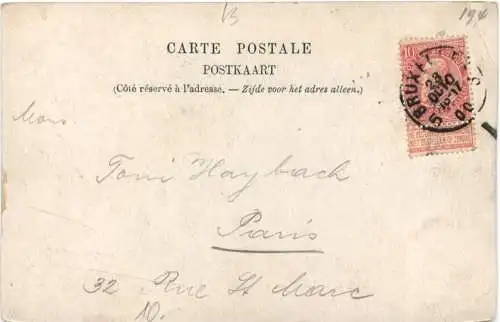 CARTE POSTALE
POSTKAART
(Côté réservé à l'adresse. — Zijde voor het adres alleen.)
10
BRUX
Mons.
Toni Haybach
Paris
32 Rue St Marc
10.